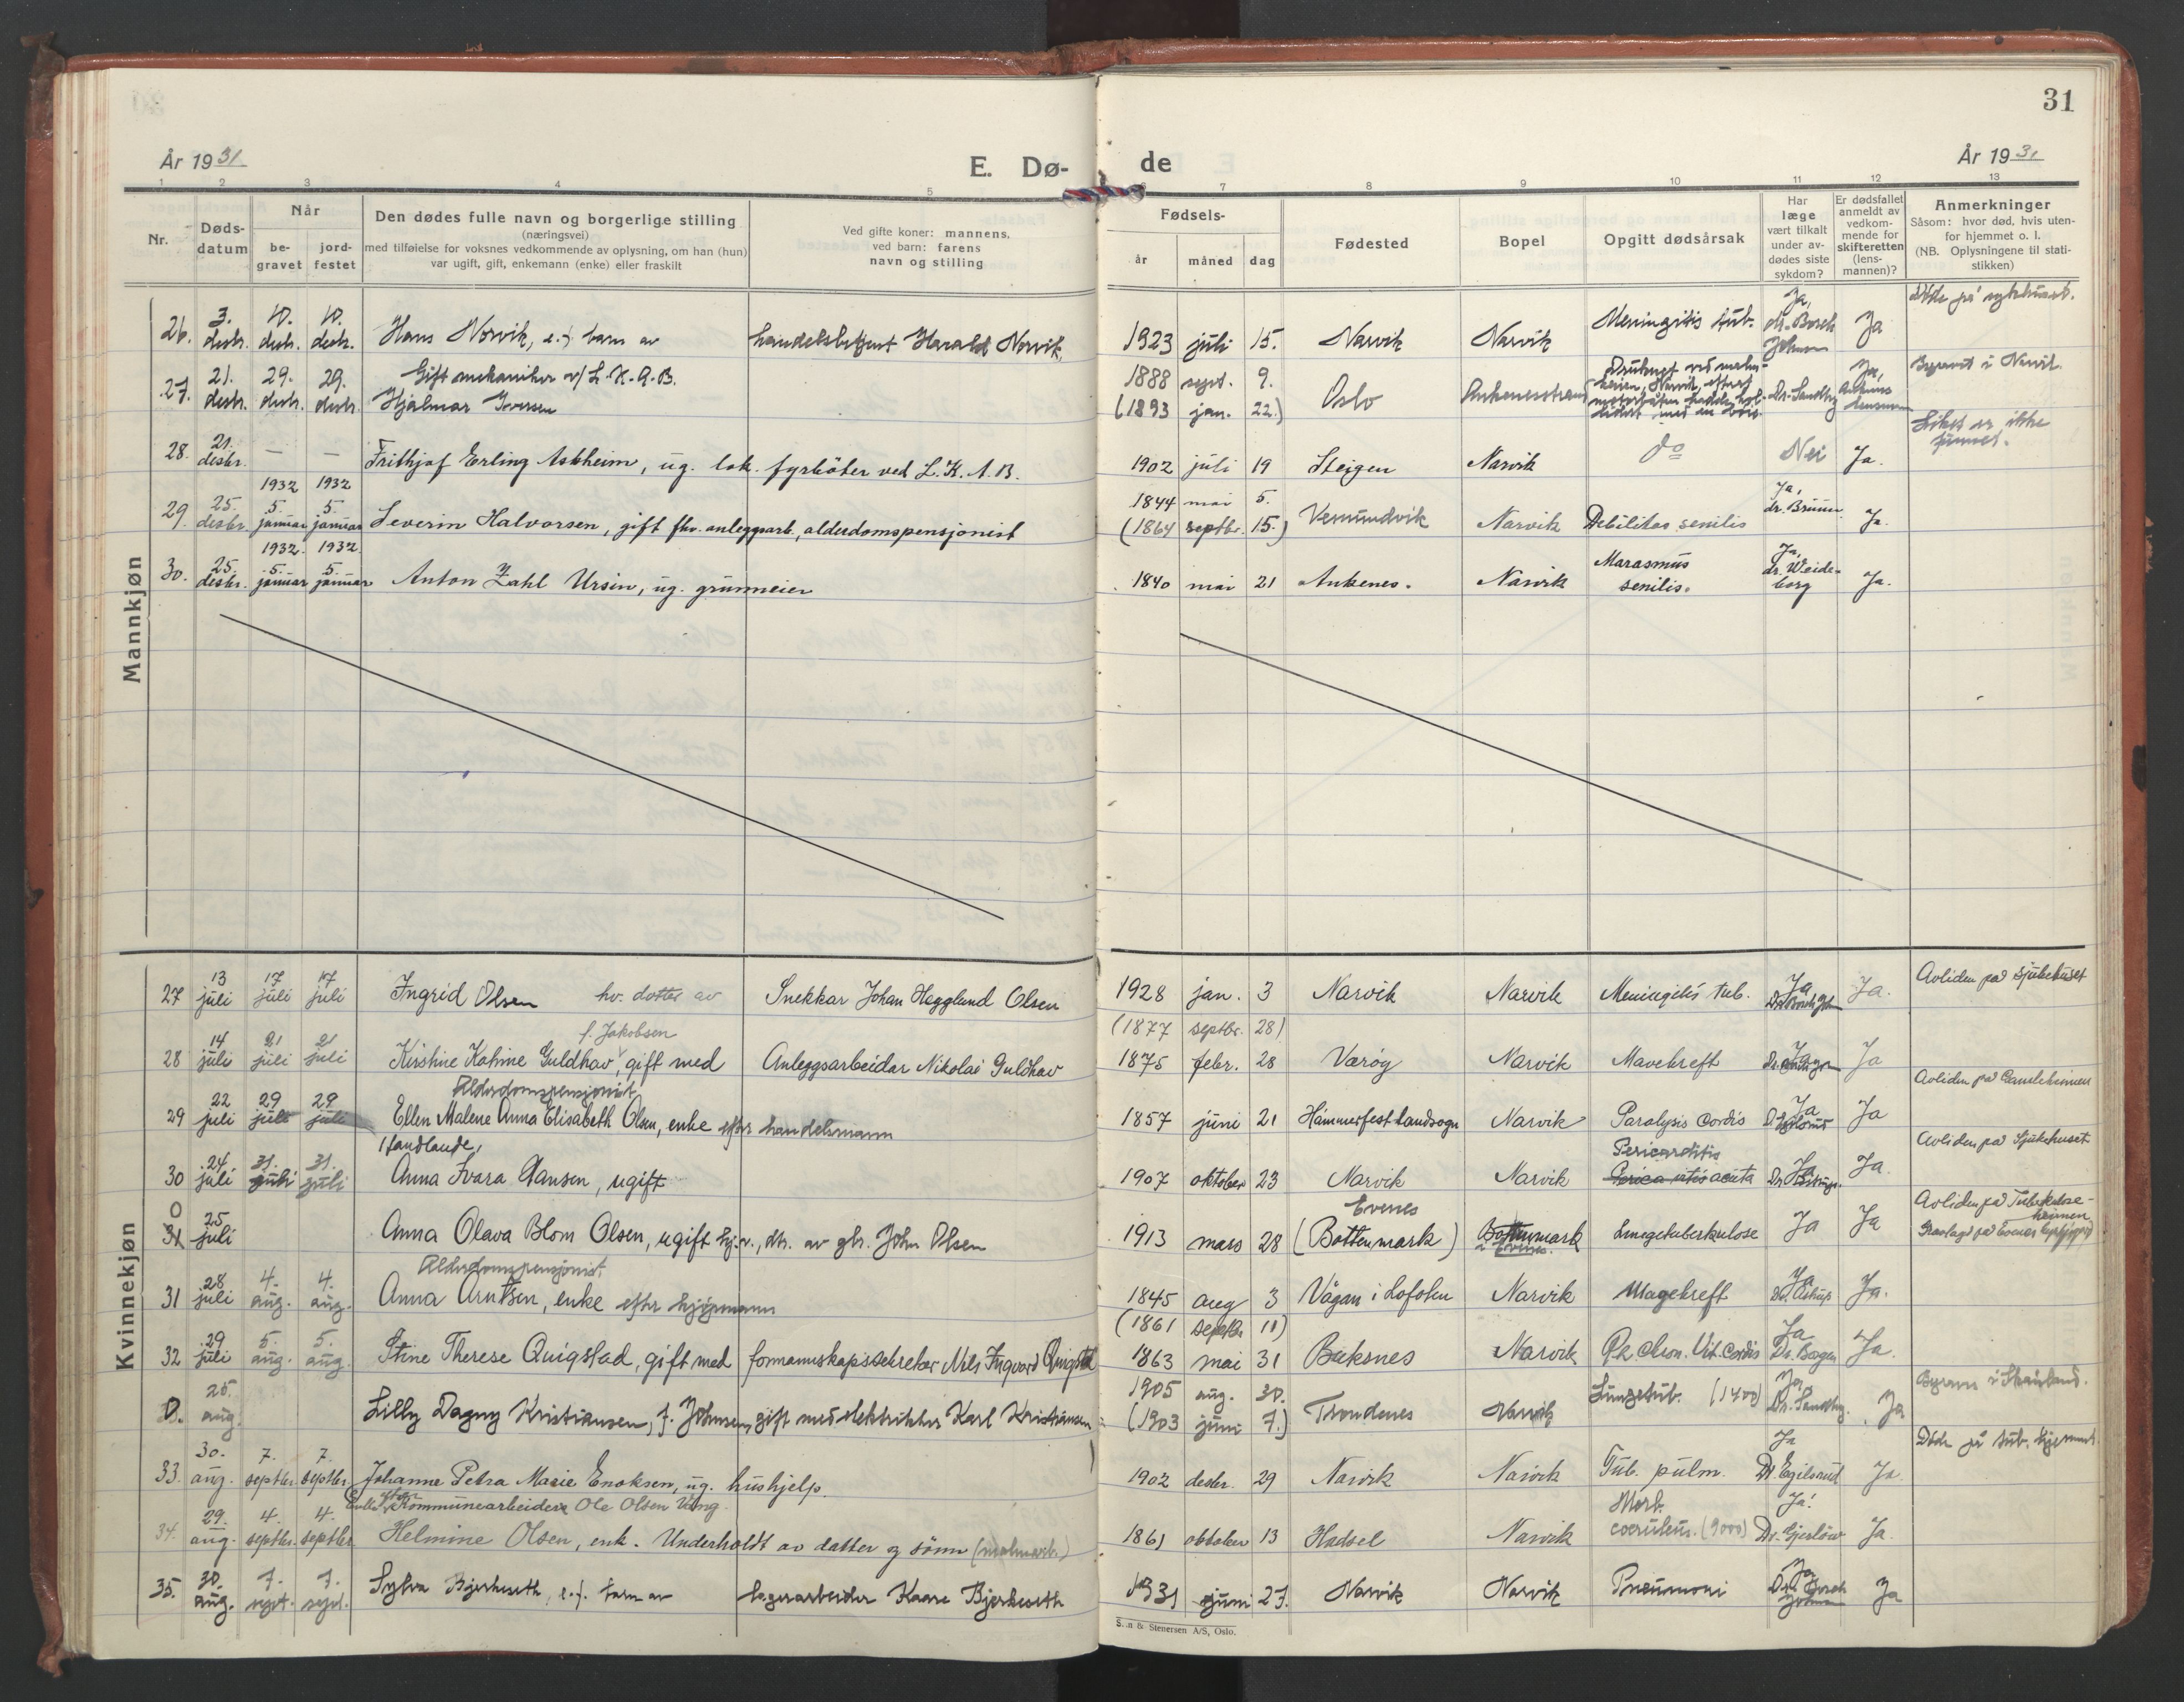 31
År 1931
E. Dø-
de
År 1931
1 2 3 4 5 7 8 9 10 11 12 13
Nr.
Døds-
datum
Når
be-
gravet
jord-
festet
Den dødes fulle navn og borgerlige stilling
(næringsvei)
med tilføielse for voksnes vedkommende av oplysning, om han (hun)
var ugift, gift, enkemann (enke) eller fraskilt
Ved gifte koner: mannens,
ved barn: farens
navn og stilling
Fødsels-
år
måned
dag
Fødested
Bopel
Opgitt dødsårsak
Har
læge
vært tilkalt
under av-
dødes siste
sykdom?
Er dødsfallet
anmeldt av
vedkom-
mende for
skifteretten
(lens-
mannen)?
Anmerkninger
Såsom: hvor død, hvis uten-
for hjemmet o. l.
(NB. Oplysningene til stati-
stikken)
Mannkjøn
26. 3. desbr. 10. desbr. 10. desbr. Hans Norvik, e.f. barn av handelsbetjent Harald Norvik 1923 juli 15. Narvik Narvik Meningitis tub. Ja, dr. Bosch Johnsen Ja Døde på sykehuset.
Gift mekaniker v/ L.K.A.B.
27. 21. desbr. 29. desbr. 29. desbr. Hjalmar Iversen 1888 sept. 9. (1893 jan. 22.) Oslo Ankenesstrand Druknet ved malm- Dr. Sandby Ja, Ankenes lensmann Begravet i Narvik.
28. 21. desbr. — — Frithjof Erling Askheim, ug. lok. fyrbøter ved L.K.A.B. 1902 juli 19 Steigen Narvik do Nei Ja. Liket er ikke funnet.
1932 1932
29. 25. desbr. 5. januar 5. januar Severin Halvorsen, gift fhv. anleggsarb., alderdomspensjonist 1844 mai 5. (1864 septbr. 15.) Vemundvik Narvik Debilitas senilis Ja, dr. Bruun. Ja.
1932. 1932.
30. 25. desbr. 5. januar 5. januar Anton Zahl Ursin, ug. grunneier 1840 mai 21 Ankenes. Narvik Marasmus senilis. Ja, dr. Weide-borg Ja.
Kvinnekjøn
27 13 juli 17 juli 17 juli Ingrid Olsen hv. dotter av Snekkar Johan Hagglund Olsen 1928 jan. 3 Narvik Narvik Meningitis tub. Ja Ja. Avliden på sjukehuset
f. Jakobsen (1877 septbr. 28)
28 14 juli 21 juli 21 juli Kirstine Katrine Guldhav, gift med Anleggsarbeidar Nikolai Guldhav 1875 febr. 28 Værøy Narvik Mavekreft Ja Ja
Alderdomspensjonist
29 22 juli 29 juli 29 juli Ellen Malene Anna Elisabeth Olsen, enke efter handelsmann 1857 juni 21 Hammerfest Landsogn Narvik Paralysis cordis Ja Ja Avliden på Gamleheimen
30 24 juli 31. juli 31. juli Anna Ivara Hansen, ugift 1907 oktober 23 Narvik Narvik Pericarditis acuta Ja Ja. Avliden på Sjukehuset
0 31 25 juli Anna Olava Blom Olsen, ugift hj.v., dtr. av gbr. John Olsen 1913 mars 28 Evenes (Bottenmark) Bottenmark i Evenes. Lungetuberkulose Ja Ja Avliden på Tuberkulose-heimen
Alderdomspensjonist.
31 28 juli 4. aug. 4. aug. Anna Arntsen, enke efter kjøpmann 1845 aug 3 Vågan i Lofoten Narvik Magekreft Ja Dr. Astrup Ja.
(1861 septbr 11)
32 29 juli 5. aug. 5. aug. Stine Therese Quigstad, gift med formannskapssekretær Nils Ingvard Quigstad 1863 mai 31 Buksnes Narvik Vit. cordis Ja Dr. Borgen Ja.
0. 25. aug. Lilly Dagny Kristiansen, f. Johnsen, gift med elektriker Karl Kristiansen 1905 aug. 30. (1903 juni 7.) Trondenes Narvik Lungetub. (1400) Ja Dr. Sandby. Ja Begraves i Skånland.
33. 30. aug. 7. septbr. 7. septbr. Johanne Petra Marie Enoksen, ug. hushjelp. 1902 desbr. 29 Narvik Narvik Tub. pulm. Ja Dr. Egilsrud Ja. Døde på tub. hjemmet.
Enke efter kommunearbeider Ole Olsen Vång.
34. 29. aug. 4. septbr. 4. septbr. Helmine Olsen, enk. Underholdt av datter og sønn (malmarb.) 1861 oktober 13 Hadsel Narvik Morb. coeruleus. (9000) Ja! Dr. Gjerløw Ja.
35. 30. aug. 7. sept. 7. sept. Sylva Bjerkeseth, e.f. barn av lagerarbeider Kaare Bjerkeseth 1931 juni 27. Narvik Narvik Pneumoni Ja Dr. Bosch Johnsen Ja
S..n & Stenersen A/S, Oslo.